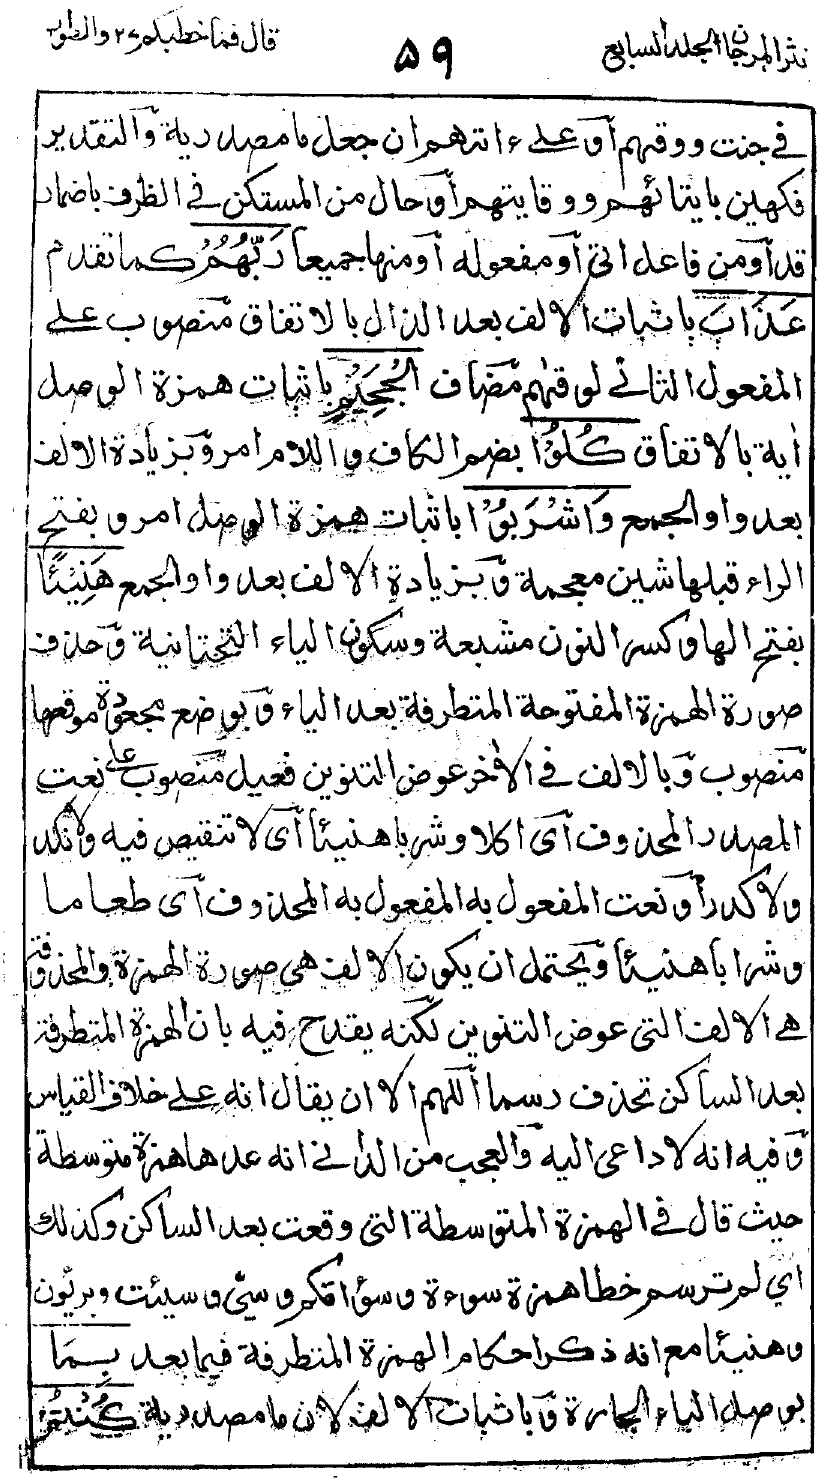 نثر المرجان الجلد السابع
۵۹
قال فما خطبكم ۲۷ والطور
في جنت ووقهم أو على ءاتهم ان جعل ما مصدرية والتقدير
فكهين بايتائهم ووقايتهم أو حال من المستكن في الظرف باضمار
قد أو من فاعل اتى أو مفعوله أو منهما جميعا رَبُّهُمْ كما تقدم
عَذَابَ باثبات الالف بعد الذال بالاتفاق منصوب على
المفعول الثاني لوقهم مضاف الْجَحِيْمِ باثبات همزة الوصل
أية بالاتفاق كُلُوْا بضم الكاف واللام امر وبزيادة الالف
بعد واو الجمع وَاشْرَبُوْا باثبات همزة الوصل امر و بفتح
الراء قبلها شين معجمة وبزيادة الالف بعد واو الجمع هَنِيْئًا
بفتح الها وكسر النون مشبعة وسكون الياء التحتانية وحذف
صورة الهمزة المفتوحة المتطرفة بعد الياء وبوضع مجعودة موقعها
منصوب وبالالف في الأخر عوض التنوين فعيل منصوب على نعت
المصدر المحذوف أى اكلا وشربا هنيئا أى لا تنقيص فيه ولا نكد
ولا كدر أو نعت المفعول به المفعول به المحذوف أى طعاما
وشرابا هنيئا ويحتمل ان يكون الالف هي صورة الهمزة والمحذوفة
هي الالف التي عوض التنوين لكنه يقدح فيه بان الهمزة المتطرفة
بعد الساكن تحذف رسما أللهم الا ان يقال انه على خلاف القياس
وفيه انه لا داعى اليه والعجب من الداني انه عدها همزة متوسطة
حيث قال في الهمزة المتوسطة التي وقعت بعد الساكن وكذلك
اي لم ترسم خطا همزة سوءة وسؤاتكم وسيّ وسيئت وبريّون
وهنيئا مع انه ذكر احكام الهمزة المتطرفة فيما بعد بِمَا
بوصل الباء الجارة وباثبات الالف لان ما مصدرية كُنْتُمْ